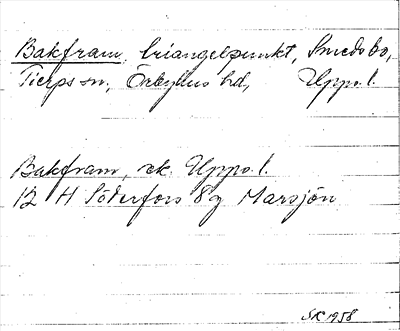 Bakfram, triangelpunkt, Smedsbo,
Tierps sn, Örbyhus hd, Upps.l.
Bakfram, ek. Upps.l.
12 H Söderfors 8g Marsjön
SK 1958